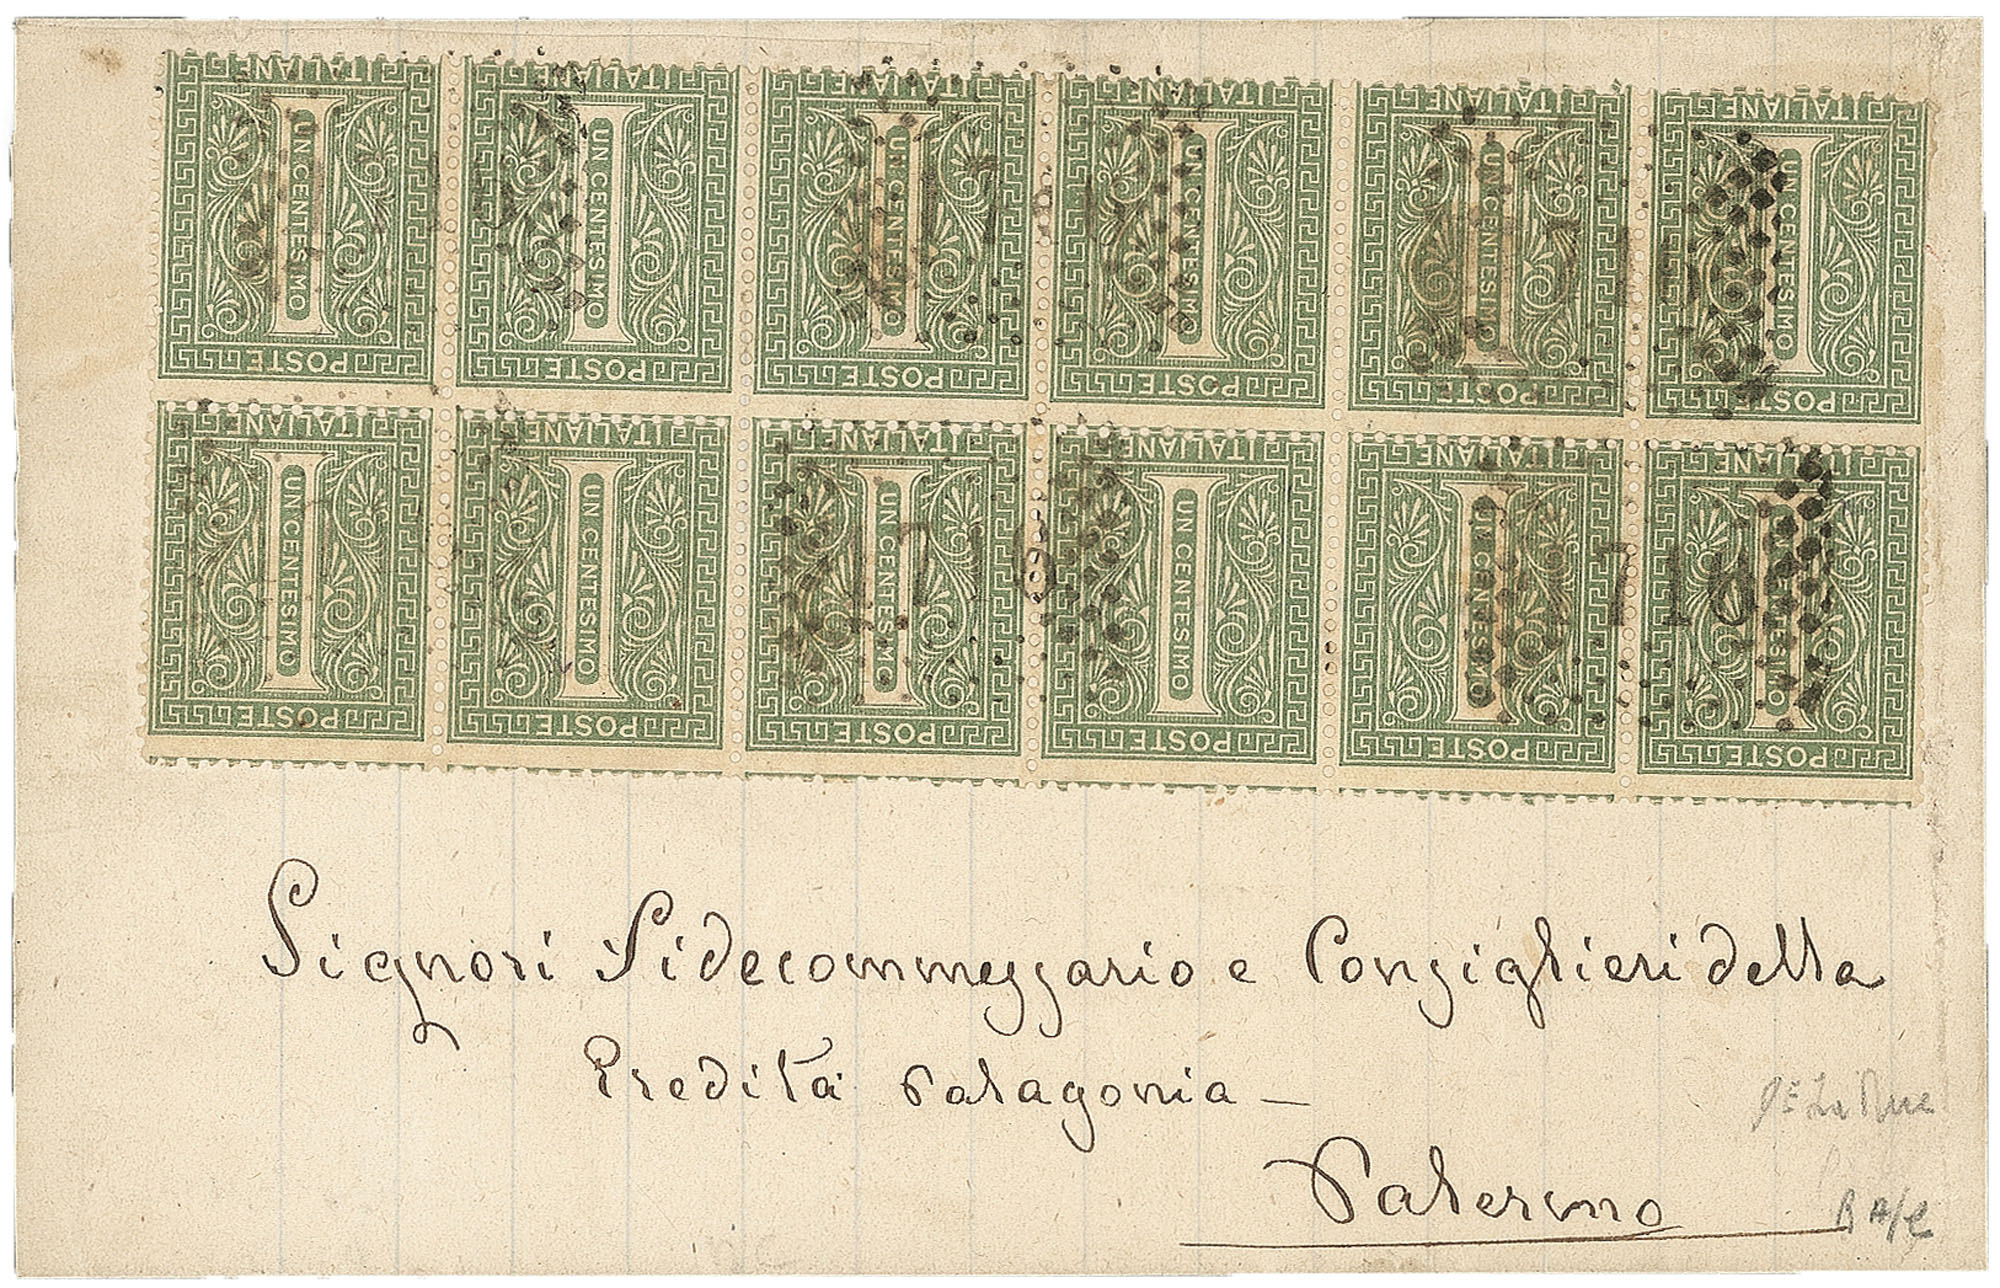 POSTE ITALIANE POSTE ITALIANE POSTE ITALIANE POSTE ITALIANE POSTE ITALIANE POSTE ITALIANE
UN CENTESIMO UN CENTESIMO UN CENTESIMO UN CENTESIMO UN CENTESIMO UN CENTESIMO
POSTE ITALIANE POSTE ITALIANE POSTE ITALIANE POSTE ITALIANE POSTE ITALIANE POSTE ITALIANE
UN CENTESIMO UN CENTESIMO UN CENTESIMO UN CENTESIMO UN CENTESIMO UN CENTESIMO
1716 1716
Signori Fidecommessario e Consiglieri della
Eredità Palagonia –
Palermo